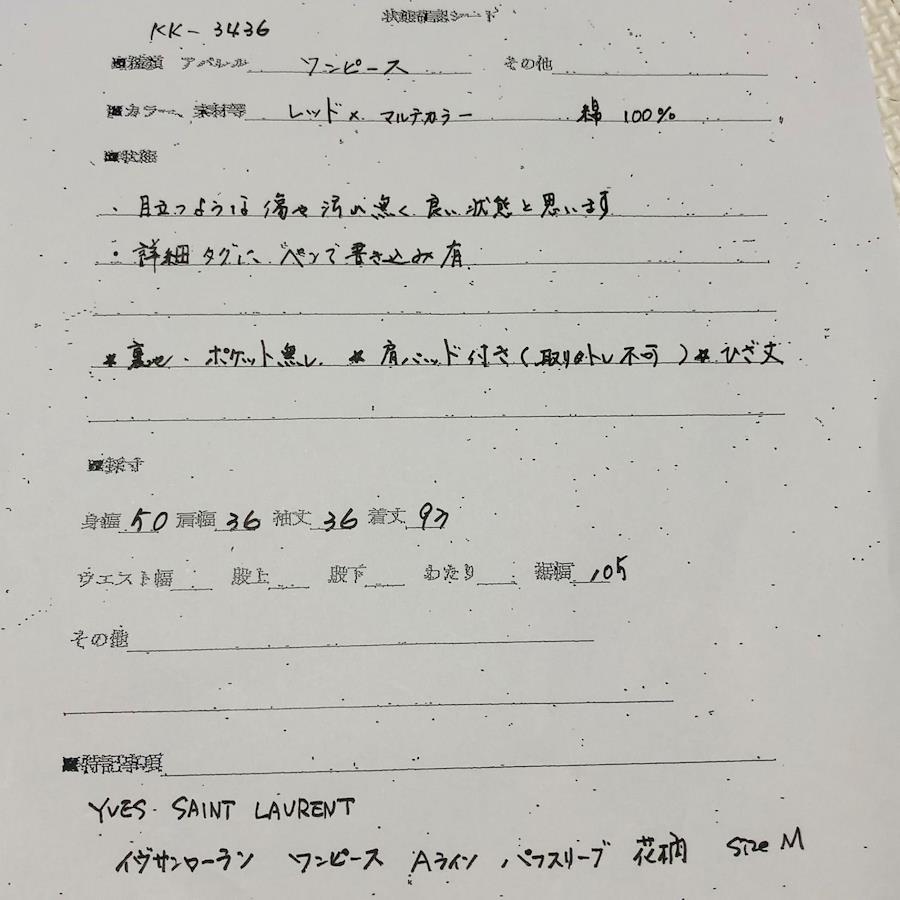 状態確認シート
KK-3436
■種類 アパレル ワンピース その他
■カラー、素材等 レッド× マルチカラー 綿 100%
■状態
・目立つような傷や汚れ無く良い状態と思います
・詳細タグに、ペンで書き込み有
*裏地・ポケット無し *肩パッド付き(取り外し不可)*ひざ丈
■採寸
身幅 50 肩幅 36 袖丈 36 着丈 93
ウエスト幅 股上 股下 わたり 裾幅 105
その他
■特記事項
YVES・SAINT LAURENT
イヴサンローラン ワンピース Aライン パフスリーブ 花柄 Size M